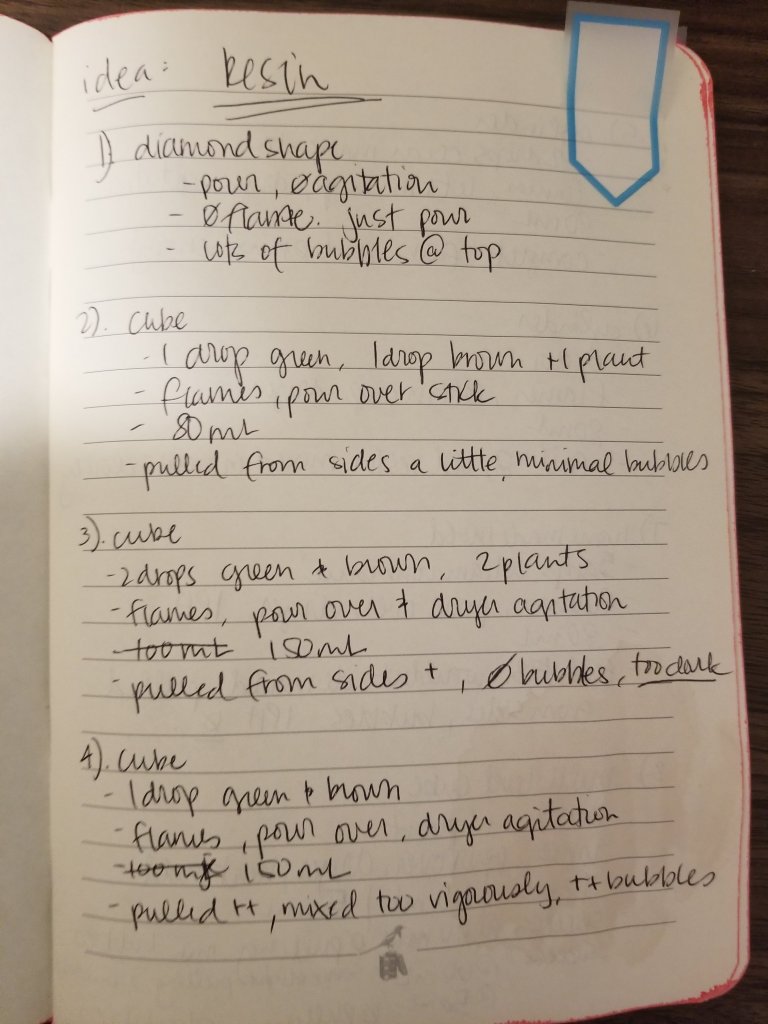 idea: Resin
1) diamond shape
- pour, ∅ agitation
- ∅ flame. just pour
- lots of bubbles @ top
2). cube
- 1 drop green, 1 drop brown + 1 plant
- flames, pour over stick
- 80 mL
- pulled from sides a little, minimal bubbles
3). cube
- 2 drops green + brown, 2 plants
- flames, pour over + dryer agitation
- 100 mL 150 mL
- pulled from sides +, ∅ bubbles, too dark
4). cube
- 1 drop green + brown
- flames, pour over, dryer agitation
- 100 mL 150 mL
- pulled ++, mixed too vigorously, ++ bubbles